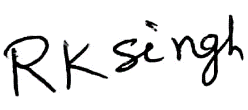 RK singh